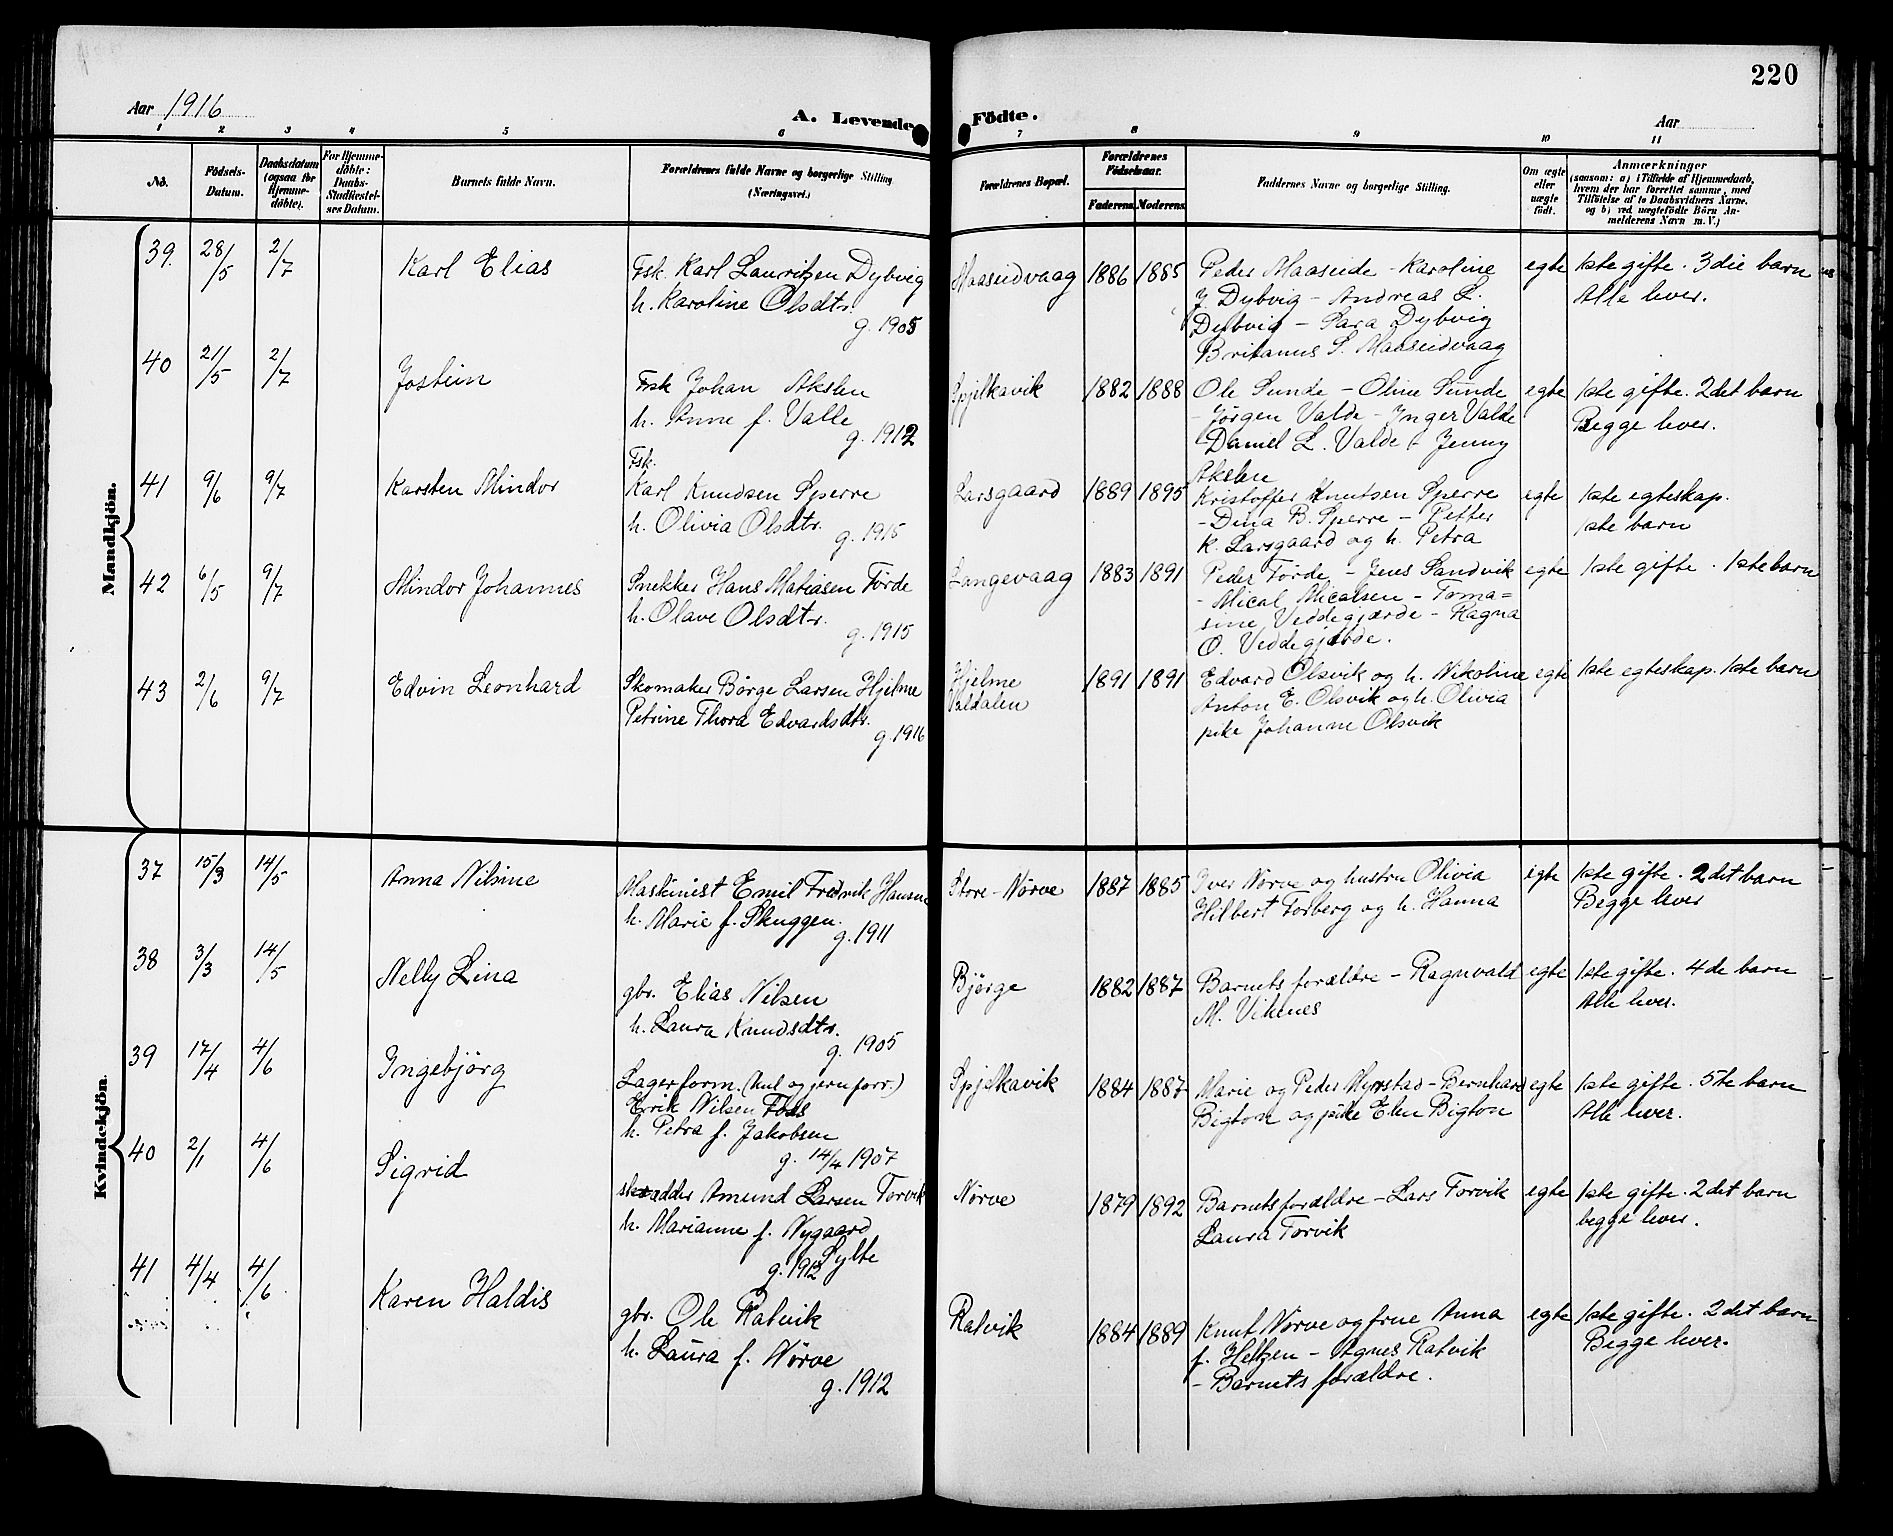 220
Aar 1916
A. Levende Födte.
Aar
1 2 3 4 5 6 7 8 9 10 11
No.
Födsels-Datum.
Daabsdatum (ogsaa for Hjemme-döbte).
For Hjemme-döbte: Daabs-Stadfæstel-ses Datum.
Barnets fulde Navn.
Forældrenes fulde Navne og borgerlige Stilling (Næringsvei.)
Forældrenes Bopæl.
Forældrenes Födselsaar.
Faderens. Moderens.
Faddernes Navne og borgerlige Stilling.
Om ægte eller uægte födt.
Anmærkninger
(saasom: a) i Tilfælde af Hjemmedaab, hvem der har forrettet samme, med Tilföielse af to Daabsvidners Navne, og b) ved uægtefödte Börn An-melderens Navn m.V.)
Mandkjön.
39. 28/5 2/7 Karl Elias
Fsk. Karl Lauritzen Dybvig
h. Karoline Olsdtr.
g. 1905
Maaseidvaag 1886 1885
Peder Maaseide - Karoline
J. Dybvig - Andreas L.
Dybvig - Sara Dybvig
Britanus S. Maaseidvaag
egte 1ste gifte. 3die barn
Alle lever.
40 21/5 2/7 Jostein
Fsk Johan Akslen
h. Anne f. Valle
g. 1912
Spjelkavik 1882 1888
Ole Sunde - Oline Sunde
- Jørgen Valde - Inger Valde
Daniel L. Valde - Jenny
Akslen
egte 1ste gifte. 2det barn
Begge lever.
41 9/6 9/7 Karsten Mindor
Fsk.
Karl Knudsen Sperre
h. Olivia Olsdtr.
g. 1915
Larsgaard 1889 1895
Kristoffer Knutsen Sperre
- Dina B. Sperre - Petter
K. Larsgaard og h. Petra
egte 1ste egteskap.
1ste barn
42 6/5 9/7 Mindor Johannes
Snekker Hans Matiasen Förde
h. Olave Olsdtr.
g. 1915
Langevaag 1883 1891
Peder Förde - Jens Sandvik
- Mical Micalsen - Toma=
sine Veddegjærde - Ragna
O. Veddegjærde.
egte 1ste gifte. 1ste barn
43 2/6 9/7 Edvin Leonhard
Skomaker Börge Larsen Hjelme
Petrine Thora Edvardsdtr.
g. 1916
Hjelme
Valdalen 1891 1891
Edvard Olsvik og h. Nikoline
Anton E. Olsvik og h. Olivia
pike Johanne Olsvik
egte 1ste egteskap. 1ste barn
Kvindekjön.
37 15/3 14/5 Anna Nilsine
Maskinist Emil Fredrik Hansen
h. Marie f. Skuggen.
g. 1911
Store-Nørve 1887 1885
Iver Nørve og hustru Olivia
Hilbert Torberg og h. Hanna
egte 1ste gifte. 2det barn
Begge lever
38 3/3 14/5 Nelly Lina
gbr. Elias Nilsen
h. Laura Knudsdtr.
g. 1905
Bjørge 1882 1887
Barnets forældre - Ragnvald
M. Viknes
egte 1ste gifte. 4de barn
Alle lever.
39 17/4 4/6 Ingebjörg
Lagerform. (kul og jernforr.)
Erik Nilsen Foss
h. Petra f. Jakobsen
g. 14/4 1907
Spjelkavik 1884 1887
Marie og Peder Myrstad - Bernhard
Bigton og pike Elen Bigton
egte 1ste gifte. 5te barn
Alle lever.
40 2/1 4/6 Sigrid
skradder Amund Larsen Torvik
h. Marianne f. Nygaard
Sylte
g. 1912
Nørve 1879 1892
Barnets forældre - Lars Torvik
Laura Torvik
egte 1ste gifte. 2det barn
begge lever.
41 4/4 4/6 Karen Haldis
gbr. Ole Ratvik
h. Laura f. Nørve
g. 1912
Ratvik 1884 1889
Knut Nørve og frue Anna
f. Heltzen - Agnes Ratvik
- Barnets forældre.
egte 1ste gifte. 2det barn
Begge lever.